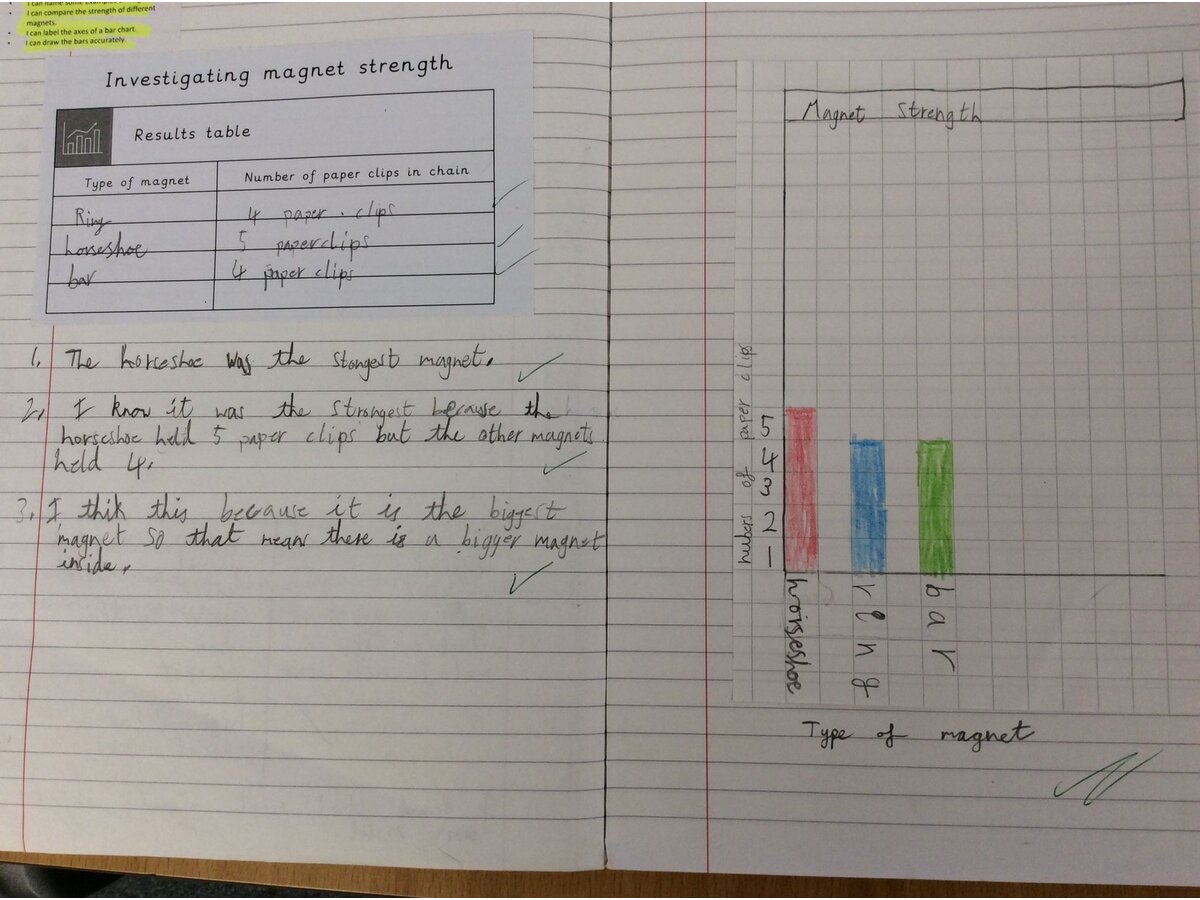 I can compare the strength of different
magnets.
I can label the axes of a bar chart.
I can draw the bars accurately.
Investigating magnet strength
Results table
Type of magnet Number of paper clips in chain
Ring 4 paper clips
horseshoe 5 paperclips
bar 4 paper clips
1. The horseshoe was the stongest magnet.
2. I know it was the strongest because the
horseshoe held 5 paper clips but the other magnets
held 4.
3. I thik this because it is the biggest
magnet so that mean there is a bigger magnet
inside.
Magnet Strength
nubers of paper clips
5
4
3
2
1
horseshoe ring bar
Type of magnet